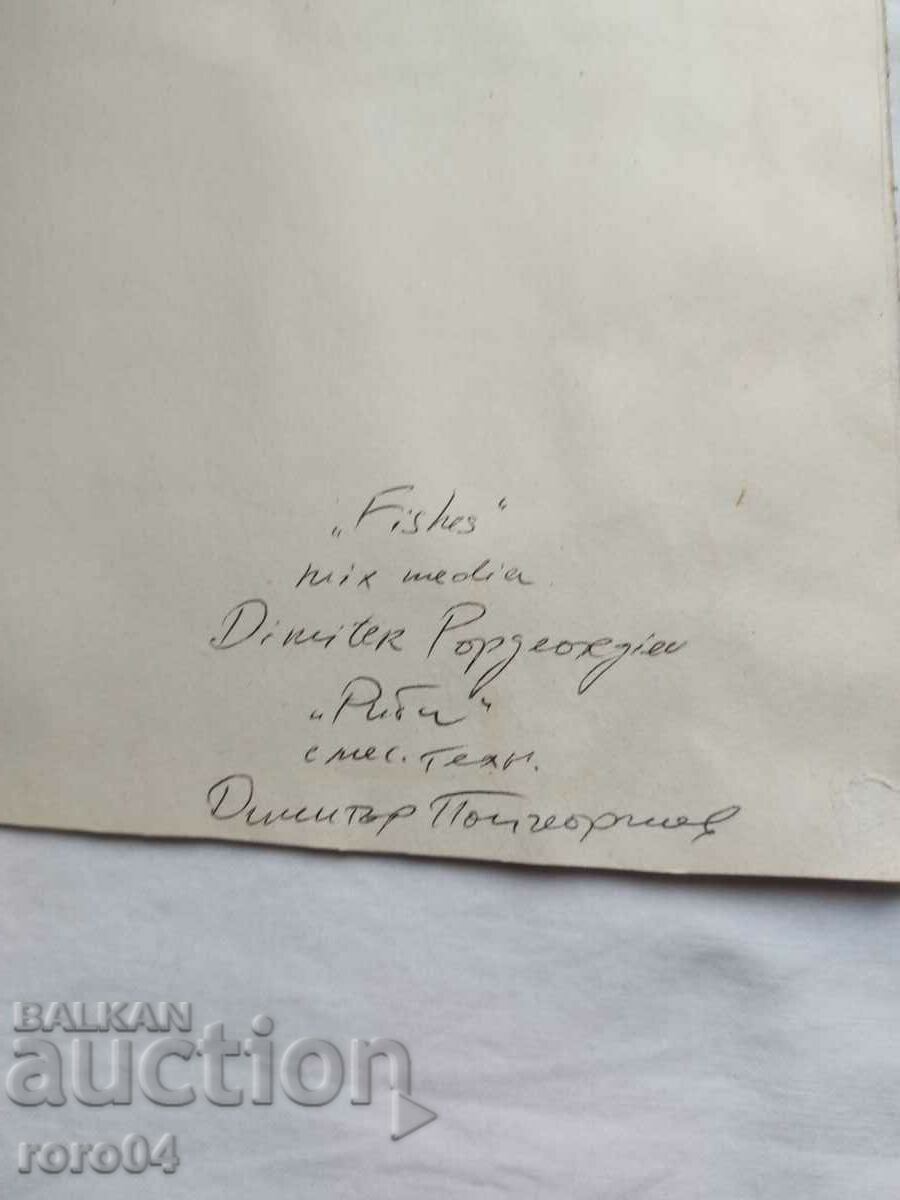 „Fishes“
mix media
Dimiter Popgeorgiev
„Риби“
смес. техн.
Димитър Попгеоргиев
BALKAN
auction
roro04